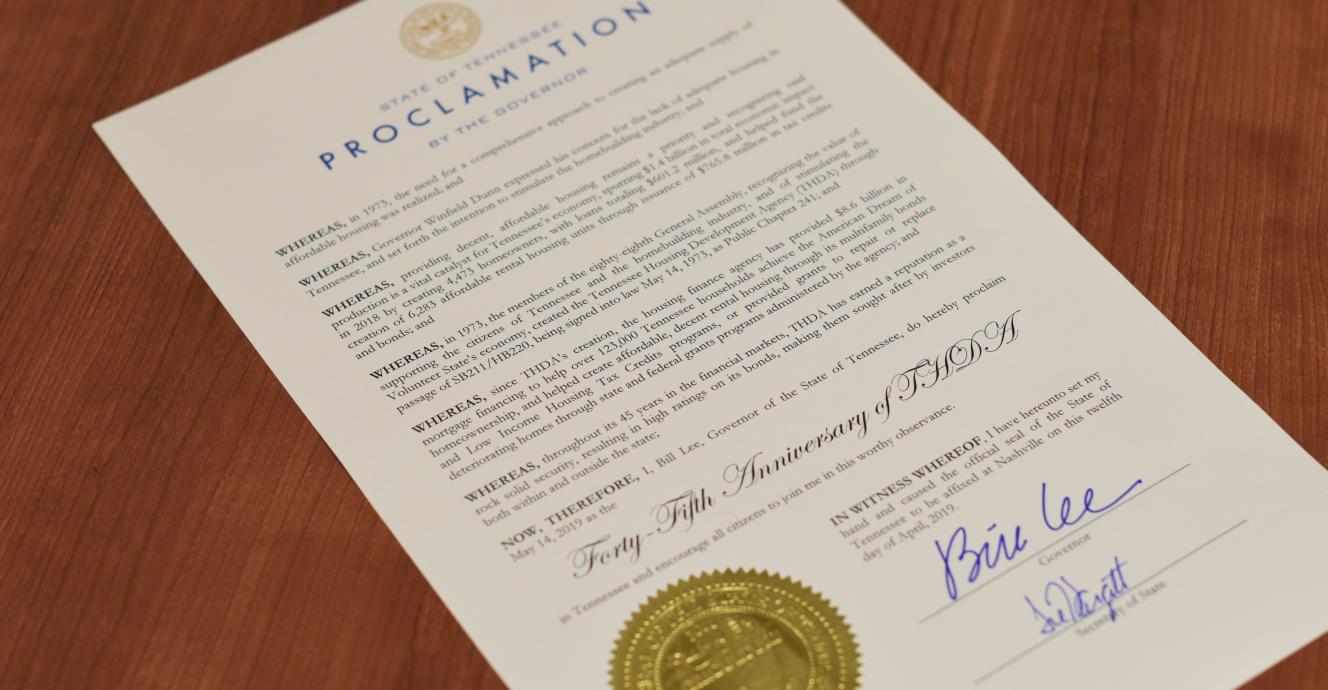 STATE OF TENNESSEE
PROCLAMATION
BY THE GOVERNOR
WHEREAS, in 1973, the need for a comprehensive approach to creating an adequate supply of
affordable housing was realized; and
WHEREAS, Governor Winfield Dunn expressed his concern for the lack of adequate housing in
Tennessee, and set forth the intention to stimulate the homebuilding industry; and
WHEREAS, providing decent, affordable housing remains a priority and recognizing said
production is a vital catalyst for Tennessee's economy, spurring $1.4 billion in total economic impact
in 2018 by creating 4,473 homeowners, with loans totaling $601.2 million, and helped fund the
creation of 6,283 affordable rental housing units through issuance of $765.8 million in tax credits
and bonds; and
WHEREAS, in 1973, the members of the eighty-eighth General Assembly, recognizing the value of
supporting the citizens of Tennessee and the homebuilding industry, and of stimulating the
Volunteer State's economy, created the Tennessee Housing Development Agency (THDA) through
passage of SB211/HB220, being signed into law May 14, 1973, as Public Chapter 241; and
WHEREAS, since THDA's creation, the housing finance agency has provided $8.6 billion in
mortgage financing to help over 123,000 Tennessee households achieve the American Dream of
homeownership, and helped create affordable, decent rental housing through its multifamily bonds
and Low Income Housing Tax Credits programs, or provided grants to repair or replace
deteriorating homes through state and federal grants programs administered by the agency; and
WHEREAS, throughout its 45 years in the financial markets, THDA has earned a reputation as a
rock solid security, resulting in high ratings on its bonds, making them sought after by investors
both within and outside the state;
NOW, THEREFORE, I, Bill Lee, Governor of the State of Tennessee, do hereby proclaim
May 14, 2019 as the
Forty-Fifth Anniversary of THDA
in Tennessee and encourage all citizens to join me in this worthy observance.
IN WITNESS WHEREOF, I have hereunto set my
hand and caused the official seal of the State of
Tennessee to be affixed at Nashville on this twelfth
day of April, 2019.
Bill Lee
Governor
Secretary of State